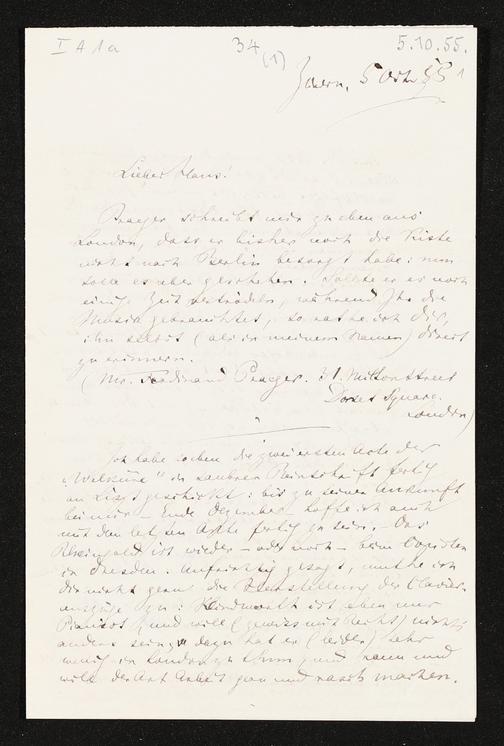 I A 1a 34 (1) 5.10.55.
5 Oct. 55 1
Lieber Hans!
Praeger schreibt mir so eben aus
London, dass er bisher noch die Kiste
nicht nach Berlin besorgt habe: nun
solle es aber geschehen. Sollte er es noch
einige Zeit vertrödeln, während Ihr die
Musik gebrauchtet, so rathe ich Dir,
ihn selbst (als in meinem Namen) direct
zu erinnern.
(Mr. Ferdinand Praeger. 31. Milton Street
Dorset Square.
London)
Ich habe soeben die zwei ersten Acte der
„Walküre" in saubrer Reinschrift fertig
an Liszt geschickt: bis zu seiner Ankunft
bei mir – Ende Dezember – hoffe ich auch
mit dem letzten Acte fertig zu sein. – Das
Rheingold ist wieder – oder noch – beim Copisten
in Dresden. Aufrichtig gesagt, muthe ich
dir nicht gern die Herstellung der Clavier-
auszüge zu: Klindworth ist eben nur
Pianist und will (gewiss mit Recht) nichts
anders sein; dazu hat er (leider) sehr
wenig in London zu thun, und kann und
will der Art Arbeit gern und rasch machen.